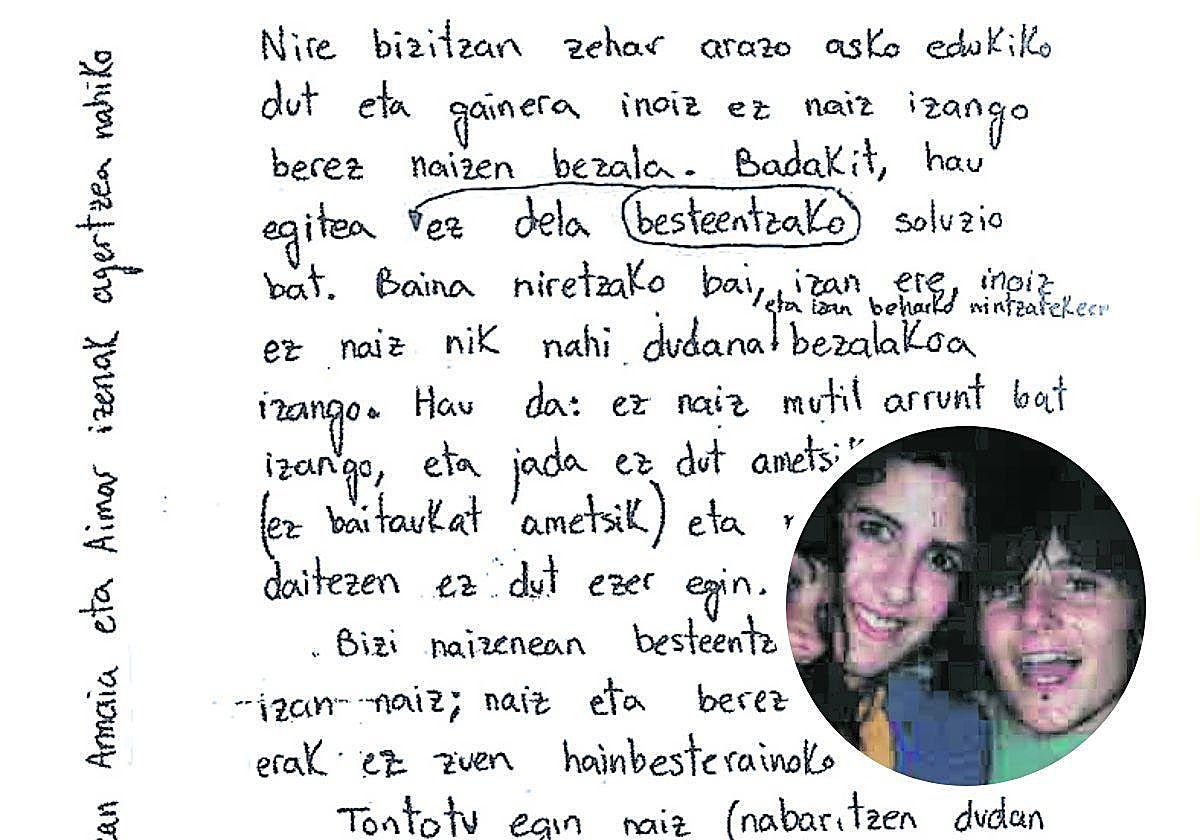 Nire bizitzan zehar arazo asko edukiko
dut eta gainera inoiz ez naiz izango
berez naizen bezala. Badakit, hau
egitea ez dela besteentzako soluzio
bat. Baina niretzako bai, izan ere, inoiz
eta izan beharko nintzatekeen
ez naiz nik nahi dudana bezalakoa
izango. Hau da: ez naiz mutil arrunt bat
izango, eta jada ez dut ametsik
(ez baitaukat ametsik) eta
daitezen ez dut ezer egin.
Bizi naizenean besteentz
izan naiz; naiz eta berez
erak ez zuen hainbesterainoko
Tontotu egin naiz (nabaritzen dudan
Armaia eta Aimar izenak agertzea nahiko